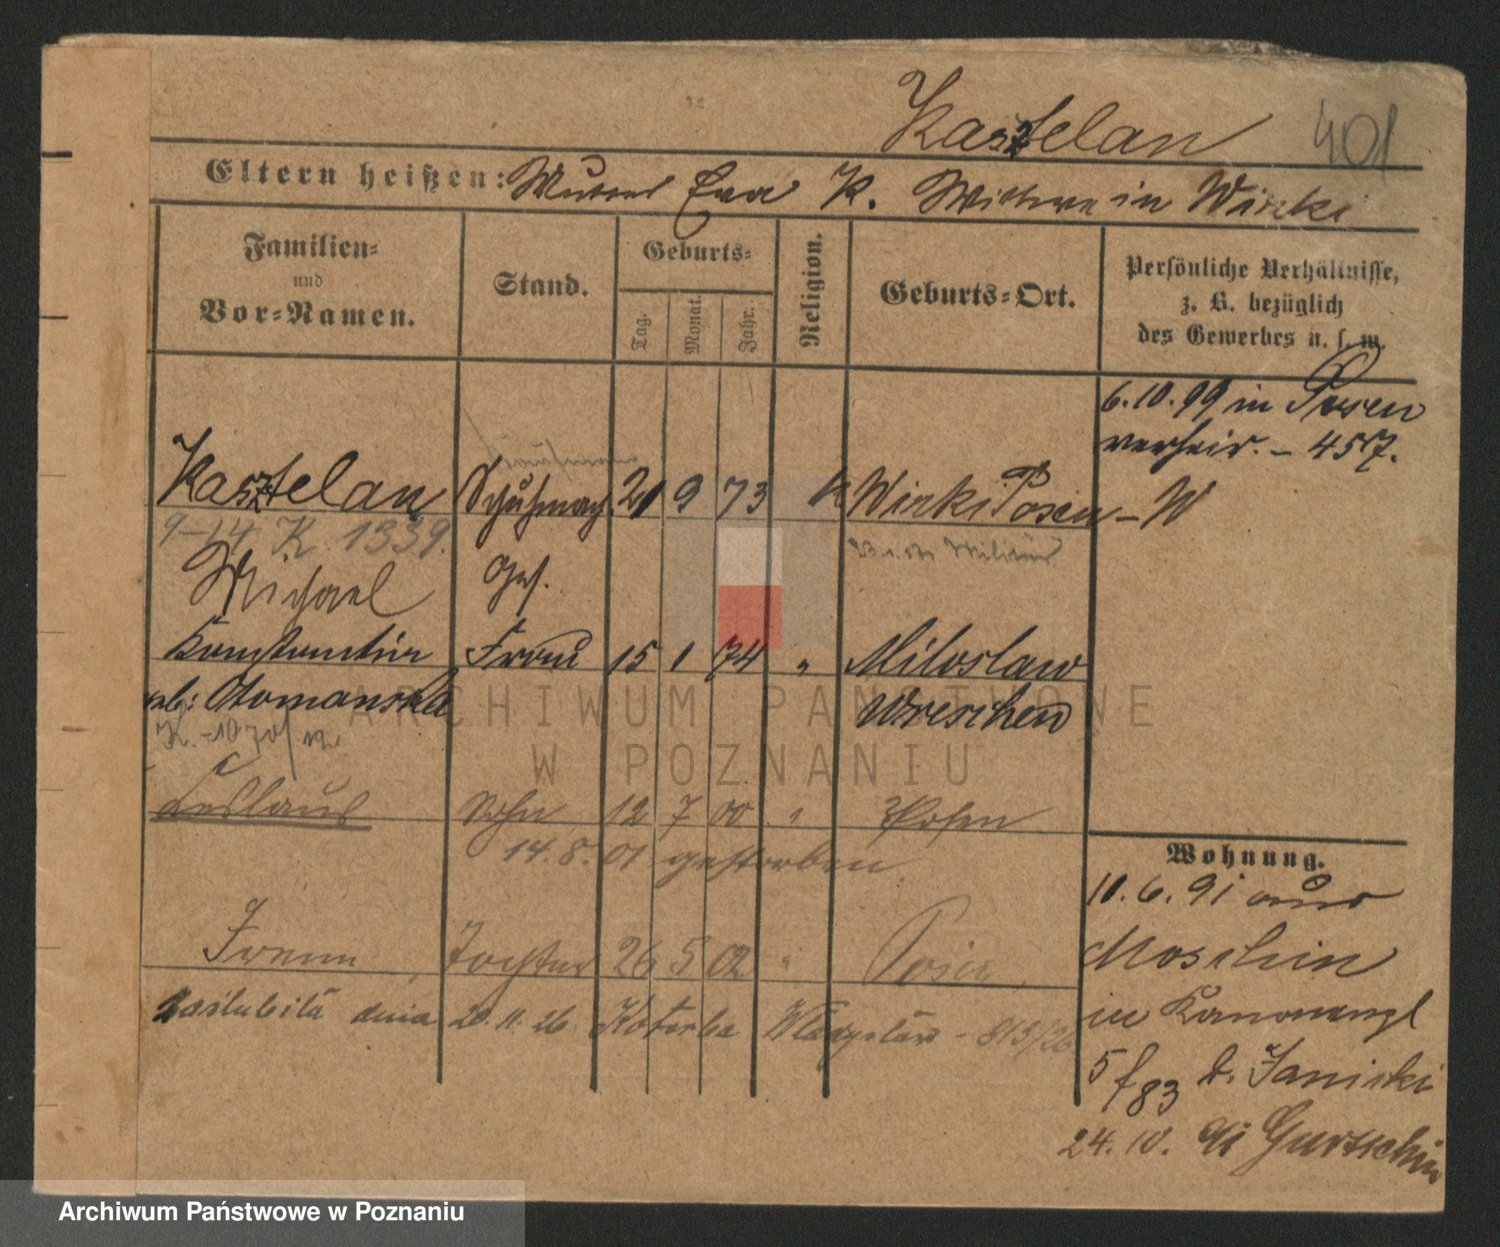 Kasztelan 401
Eltern heißen: Mutter Eva K. Wittwe in Wirski
Familien-
und
Vor-Namen.
Stand.
Geburts-
Tag.
Monat.
Jahr.
Religion.
Geburts-Ort.
Persönliche Verhältnisse,
z. B. bezüglich
des Gewerbes u. s. w.
6.10.99 in Posen
verheir. - 457.
Kasztelan Schuhmach 21 9 73 k Wirki Posen - W
9-14 K. 1339. Militär
Michael Ges.
Konstantin Frau 15 1 74 " Miloslaw
geb: Otomanska Wreschen
K.-1070/12
Ceslaus Sohn 12 7 00 " Posen
14.8.01 gestorben.
Wohnung.
10.6.91 aus
Moschin
Irene, Tochter 26 5 02 " Posen
zaślubiła dnia 20.11.26 Kotorba - 813/26
in Kanonengl
5/83 b. Janicki
24.10. 91 Gurtschin
ARCHIWUM PAŃSTWOWE
W POZNANIU
Archiwum Państwowe w Poznaniu